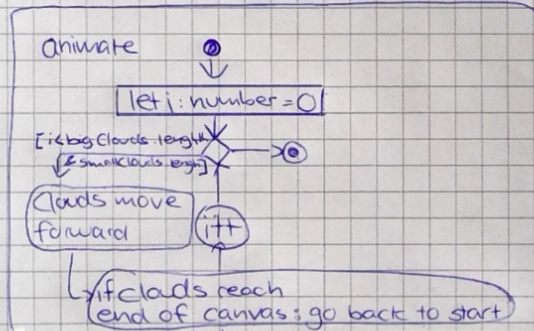 animate
let i: number = 0
[i<bigClouds.length
& smallClouds.length]
Clouds move
forward
i++
if clouds reach
end of canvas: go back to start